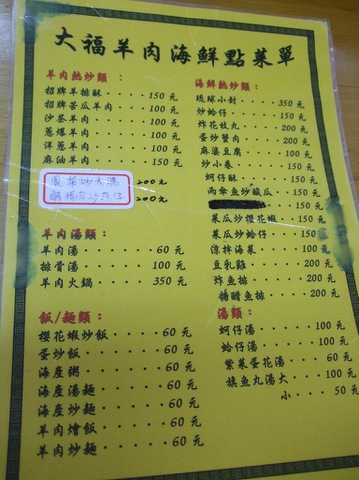 大福羊肉海鮮點菜單
羊肉熱炒類：
招牌羊排酥．．．．150 元
招牌苦瓜羊肉．．．100 元
沙茶羊肉．．．．．100 元
蔥爆羊肉．．．．．100 元
洋蔥羊肉．．．．．100 元
麻油羊肉．．．．．150 元
200元
200元
羊肉湯類：
羊肉湯．．．．．．60 元
排骨湯．．．．．．100 元
羊肉火鍋．．．．．350 元
飯/麵類：
櫻花蝦炒飯．．．．60 元
蛋炒飯．．．．．．60 元
海產粥．．．．．．60 元
海產湯麵．．．．．60 元
海產炒麵．．．．．60 元
羊肉燴飯．．．．．60 元
羊肉炒麵．．．．．60 元
海鮮熱炒類：
琉球小封．．．．．350 元
炒蛤仔．．．．．．150 元
炸花枝丸．．．．．200 元
蛋炒蟹肉．．．．．200 元
麻婆豆腐．．．．．100 元
炒小卷．．．．．．150 元
蚵仔酥．．．．．．150 元
雨傘魚炒酸瓜．．．150 元
150 元
菜瓜炒櫻花蝦．．．150 元
菜瓜炒蛤仔．．．．150 元
涼拌海菜．．．．．100 元
豆乳雞．．．．．．200 元
炸魚排．．．．．．200 元
糖醋魚排．．．．．200 元
湯類：
蚵仔湯．．．．．．100 元
蛤仔湯．．．．．．100 元
紫菜蛋花湯．．．．60 元
旗魚丸湯大．．．．100 元
小．．．．50 元